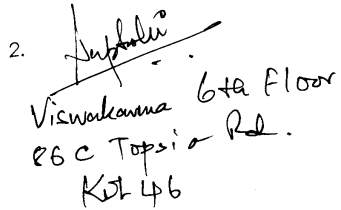 2.
Viswakarma 6th Floor
86 C Topsia Rd.
Kol 46